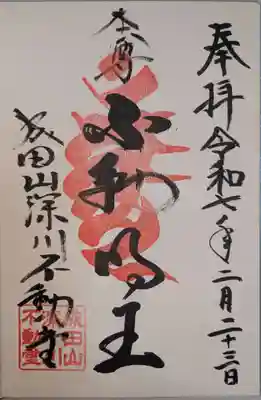 奉拝 令和七年二月二十三日
本尊
不動明王
成田山深川不動堂
成田山
深川
不動堂